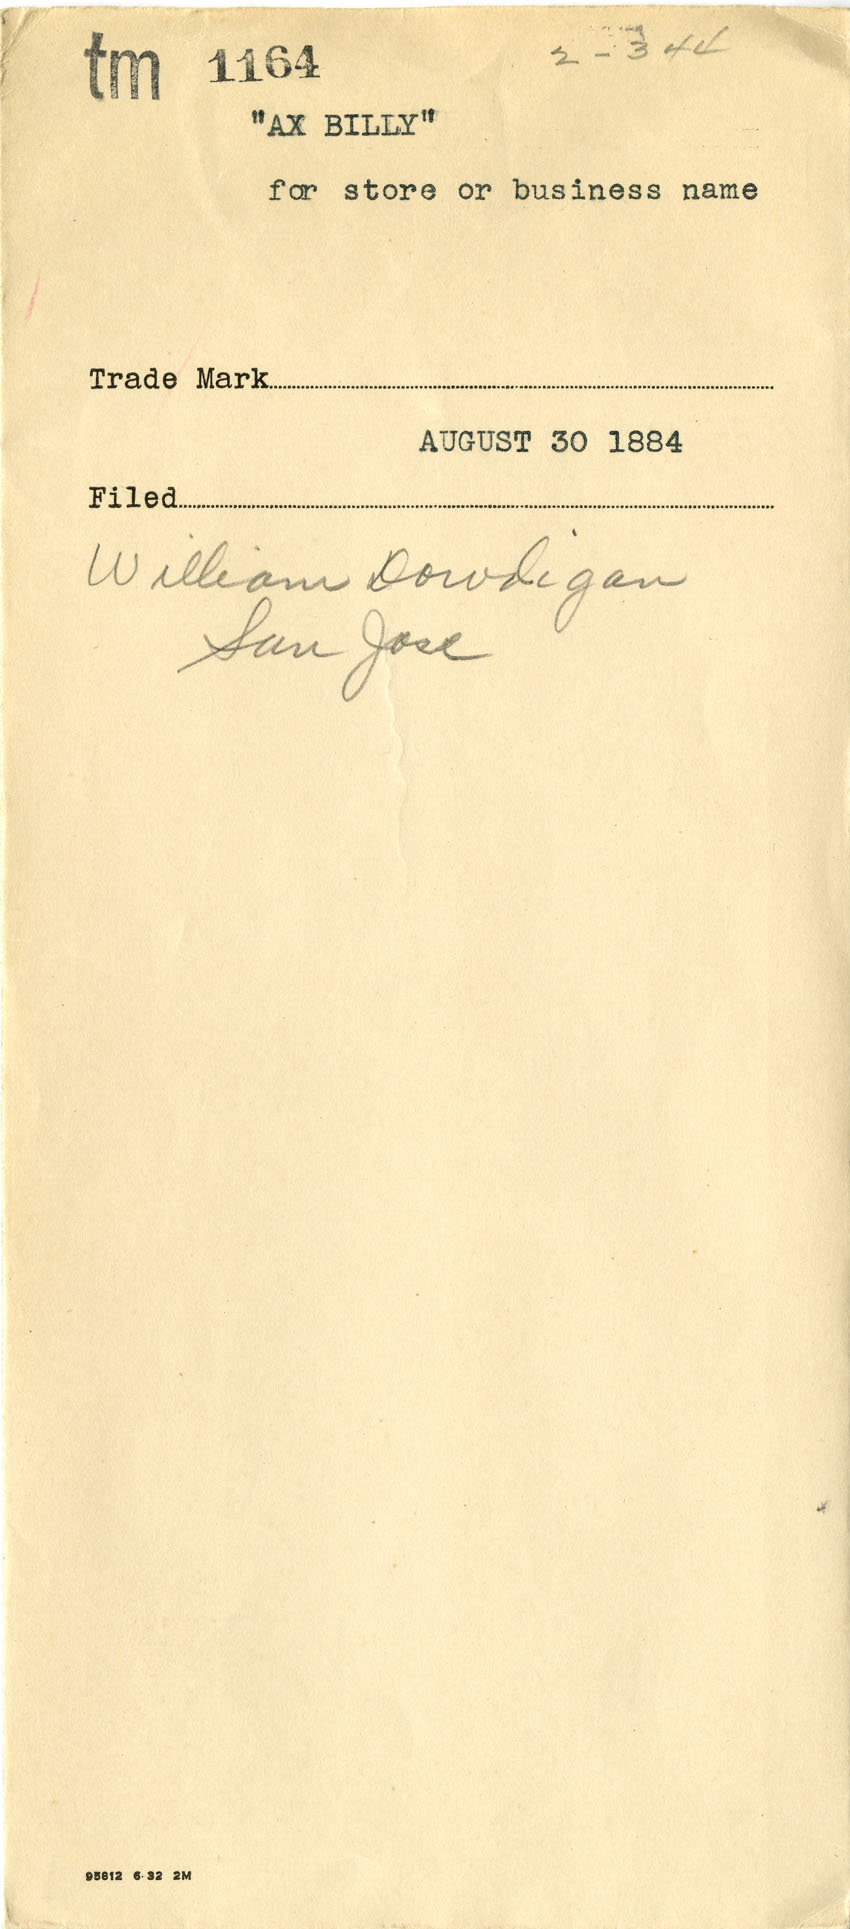 tm 1164 2-344
"AX BILLY"
for store or business name
Trade Mark
AUGUST 30 1884
Filed
William Dowdigan
San Jose
95812 6-32 2M